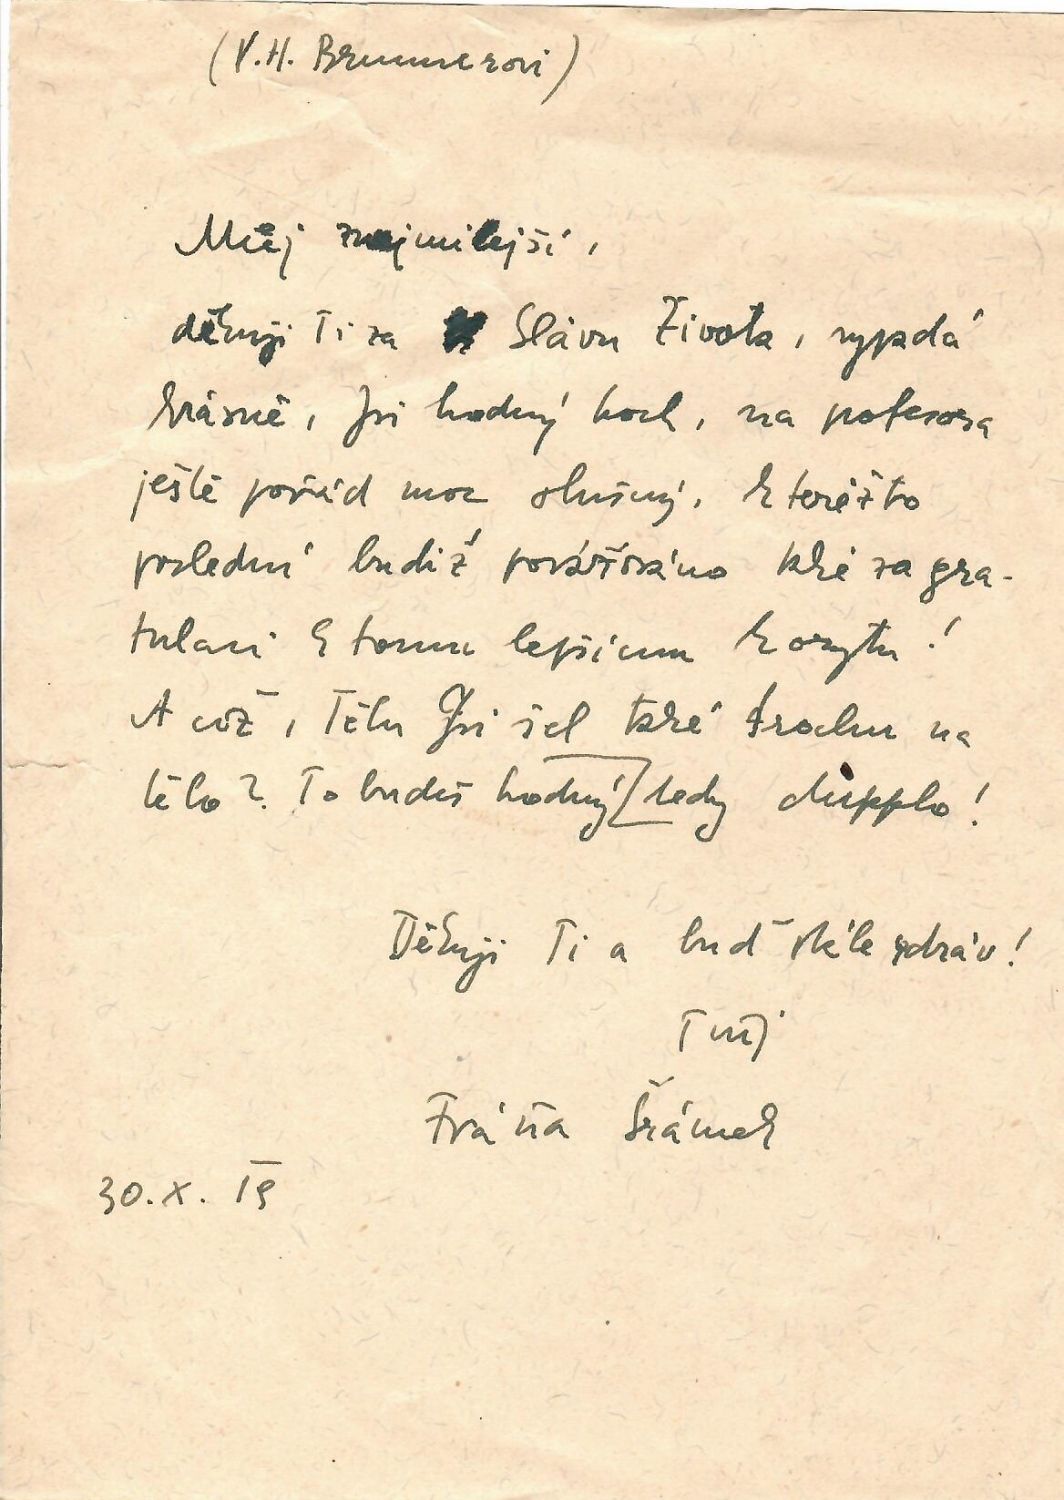 (V. H. Brunnerovi)
Můj nejmilejší,
děkuji Ti za Slávu Života, vypadá
krásně, jsi hodný hoch, na profesora
ještě pořád moc slušný, kteréžto
poslední budiž považováno také za gra-
tulaci k tomu lepšímu korytu!
A což, Tělu jsi šel také trochu na
tělo? To budeš hodný tedy dupplo!
Děkuji Ti a buď stále zdráv!
Tvůj
Fráňa Šrámek
30. X. 19